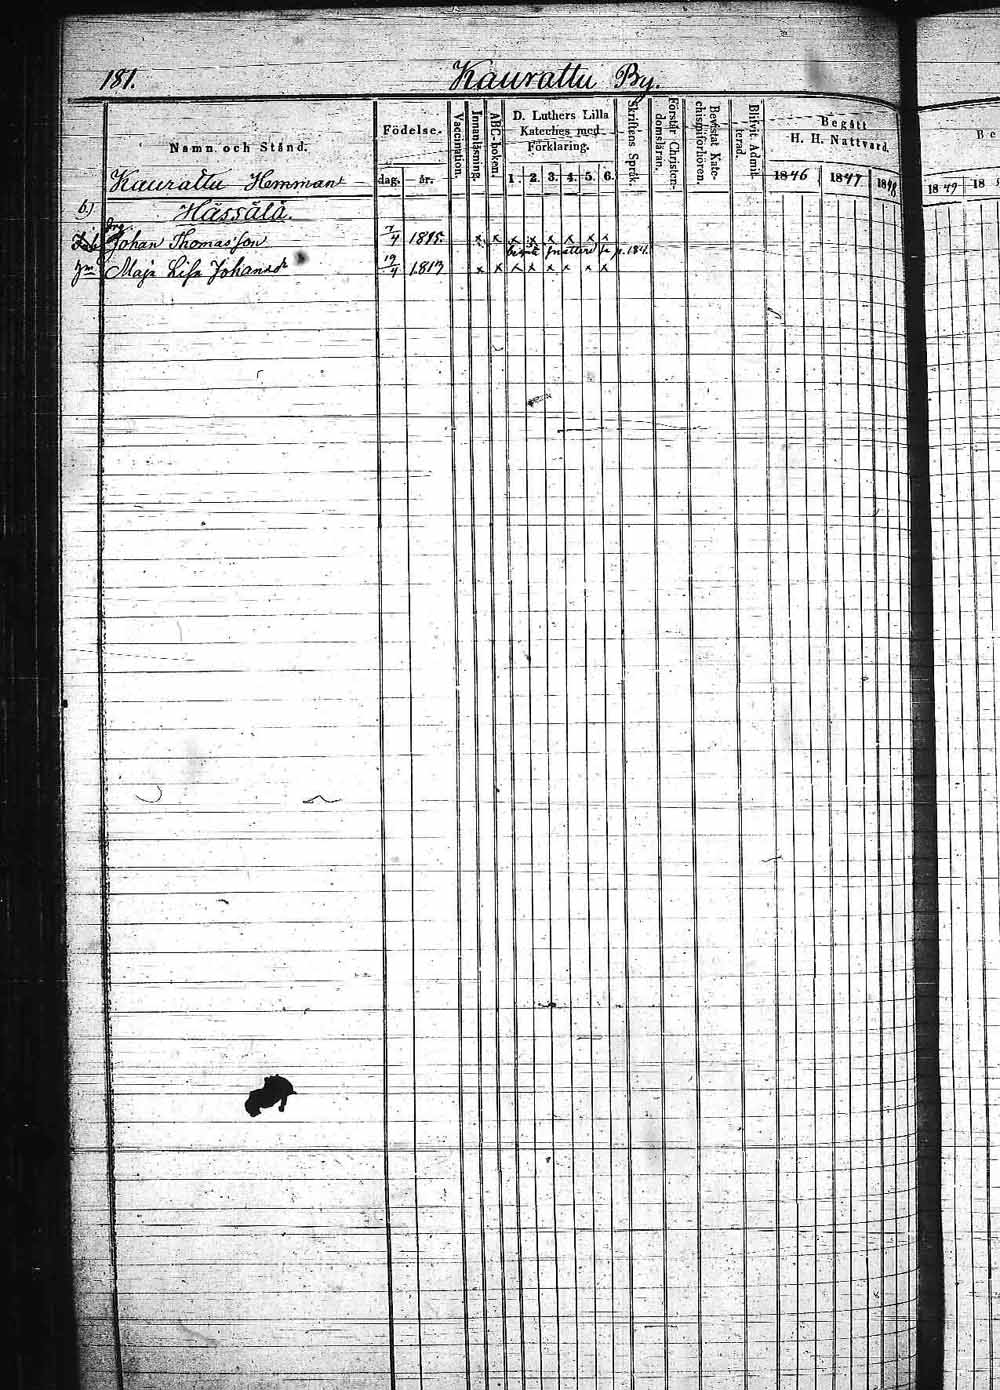 181. Kaurattu By.
Namn och Stånd.
Födelse-
dag. år.
Vaccination.
Innanläsning.
ABC-boken.
D. Luthers Lilla
Kateches med
Förklaring.
1. 2. 3. 4. 5. 6.
Skriftens Språk.
Förstår Christen-
domsläran.
Bevistat Kate-
chismiförhören.
Blifvit Admit-
terad.
Begått
H. H. Nattvard.
1846 1847 1848
Be
1849 18
Kaurattu Hemman
6) Hässälä.
Johan Thomasson 7/4 1815. x x x x x x x x
p. 184.
Maja Lisa Johansd 19/4 1813 x x x x x x x x